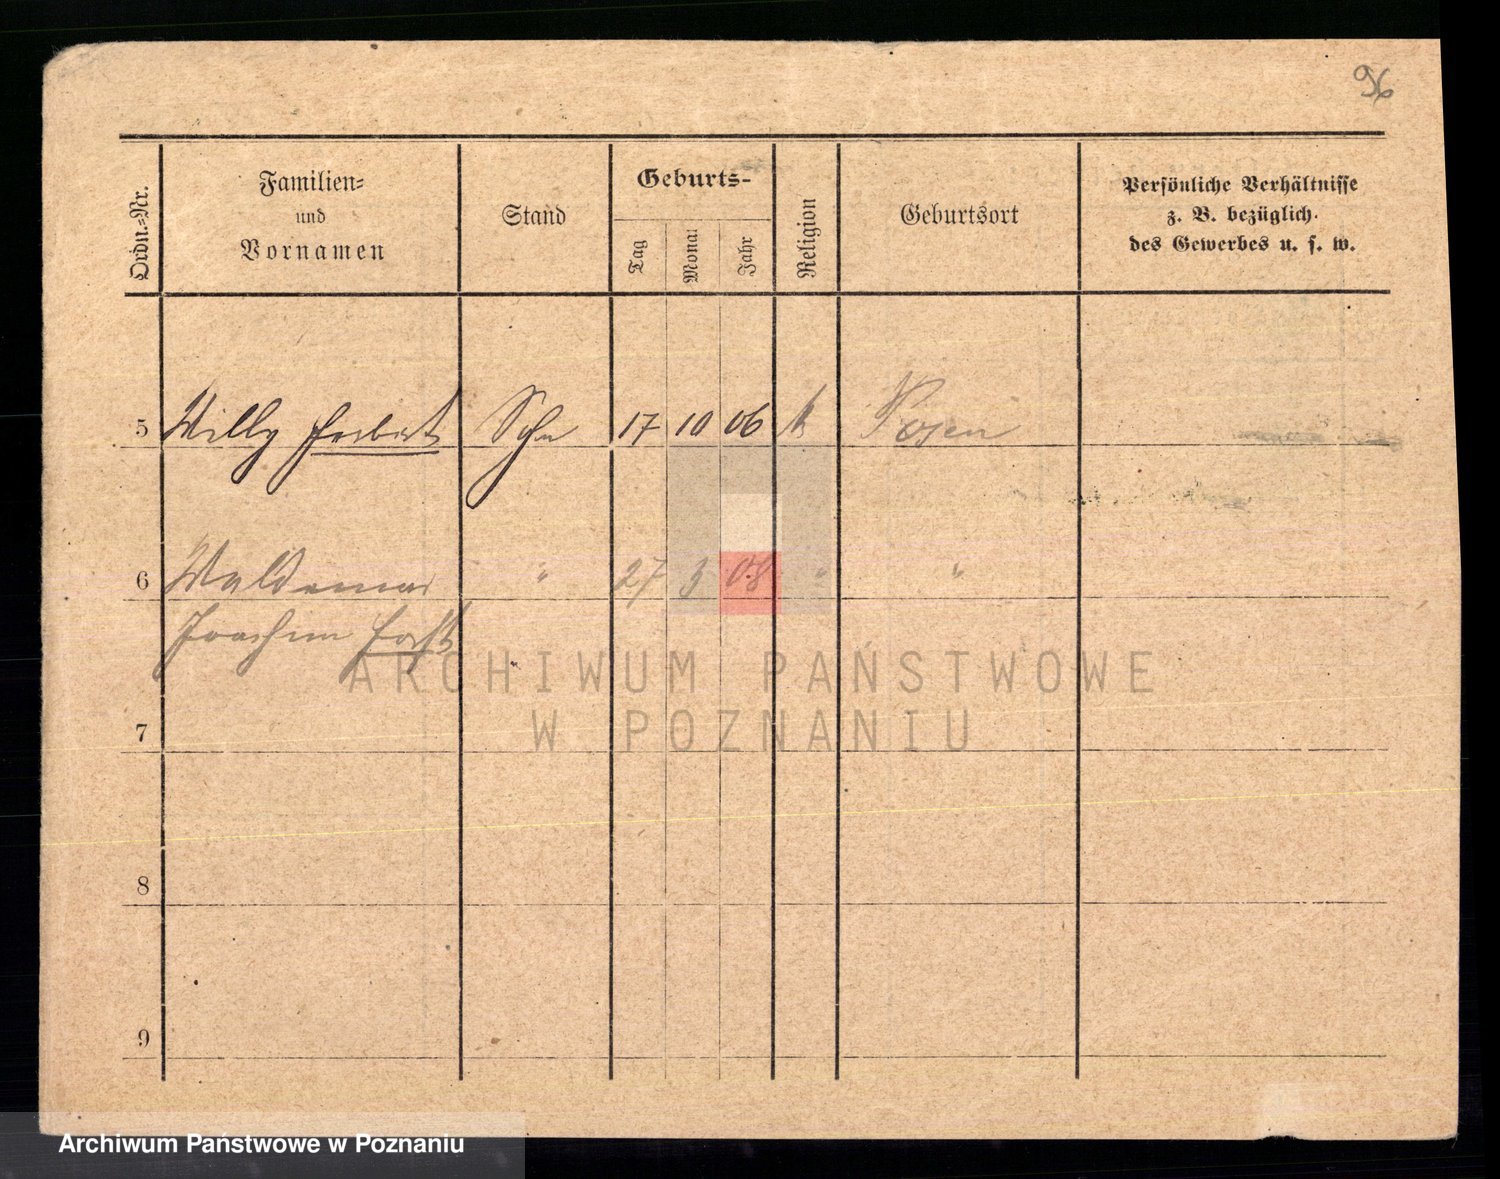 96
Ordn.-Nr.
Familien-
und
Vornamen
Stand
Geburts-
Tag
Monat
Jahr
Religion
Geburtsort
Persönliche Verhältnisse
z. B. bezüglich
des Gewerbes u. s. w.
5 Willy Herbert Sohn 17 10 06 k Posen
6 Waldemar " 27 3 08 " "
Joachim Horst
7
8
9
ARCHIWUM PAŃSTWOWE
W POZNANIU
Archiwum Państwowe w Poznaniu